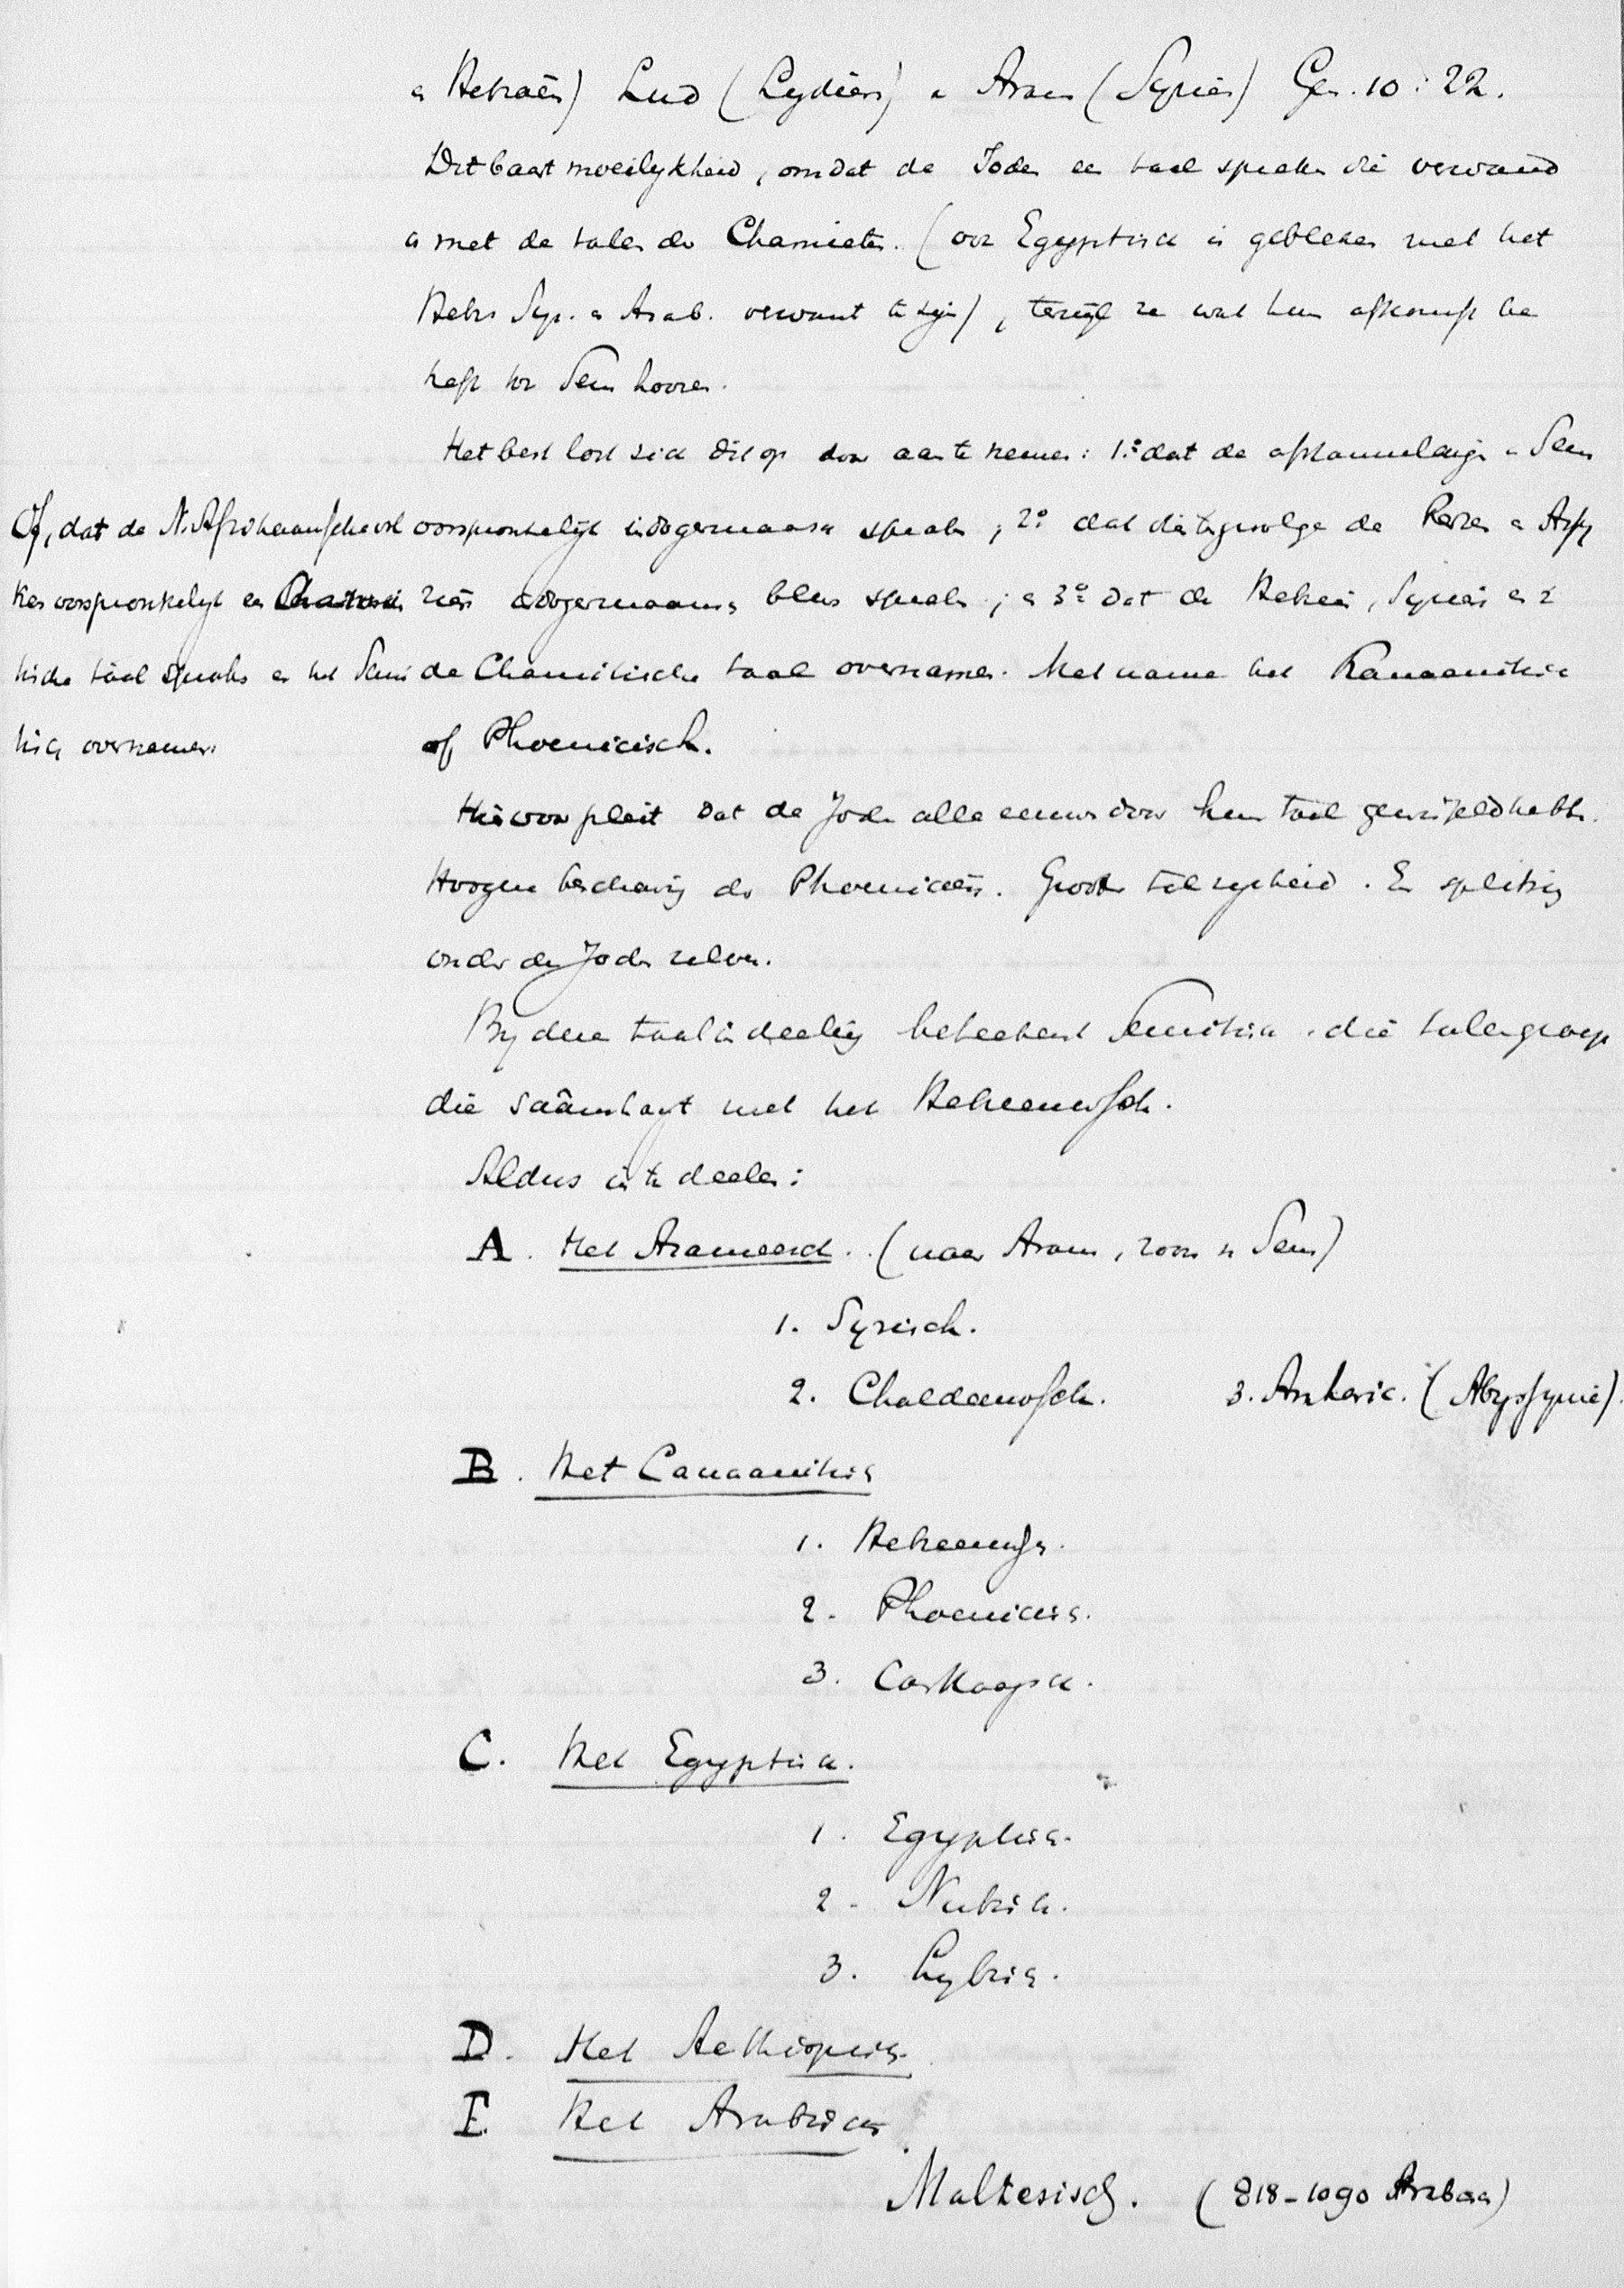 en Hebraën) Lud (Lydiërs) en Aram (Syriërs) Gen. 10 : 22.
Dit baart moeilykheid, omdat de Joden een taal spreken die verwand
is met de talen der Chamieten. (ook Egyptisch is gebleken met het
Hebr Syr. en Arab. verwant te zijn), terwijl ze wat hun afkomst be
treft tot Sem hooren.
Het best lost zich dit op door aan te nemen: 1.º dat de afstammelingen v Sem
oorspronkelijk indogermaansch spraken ; 2º dat dientengevolge de Perzen en
indogermaansch bleven spreken ; en 3º dat de Hebreën, Syriërs enz
de Chamitische taal overnamen. Met name het Kanaanitisch
of Phoenicisch.
Of, dat de N. Afrikaansche
ken oorspronkelijk een
tische taal spraken en het Semi
tisch overnamen.
Hiervoor pleit dat de Joden alle eeuwen door hun taal gewisseld hebben.
Hoogere beschaving der Phoeniciërs. Groote talrijkheid. En splitsing
onder de Joden zelven.
By deze taalindeeling beteekent Semitisch die talengroep
die saâmhangt met het Hebreeuwsch.
Aldus in te deelen:
A. Het Arameesch. (naar Aram, zoon v Sem)
1. Syrisch.
2. Chaldeeuwsch. 3. Amharic. (Abyssynië).
B. Het Canaanitisch
1. Hebreeuwsch.
2. Phoenicisch.
3. Carthaagsch.
C. Het Egyptisch.
1. Egyptisch.
2. Nubisch.
3. Lybisch.
D. Het Aethiopisch.
E. Het Arabisch
Maltesisch. (818-1090 Arabisch)